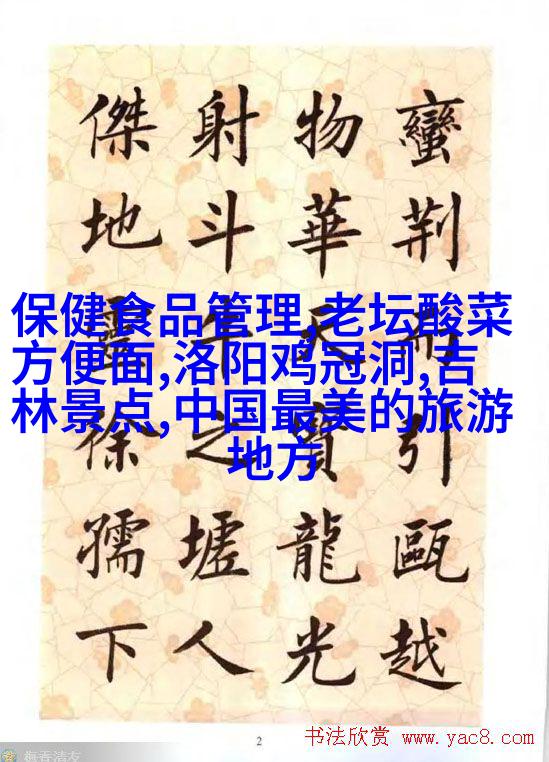 蠻荆而引甌越
物華天寶龍光
射斗牛之墟人
傑地靈徐孺下
保健食品管理,老坛酸菜
方便面,洛阳鸡冠洞,吉
林景点,中国最美的旅游
地方
2
书法欣赏 www.yac8.com